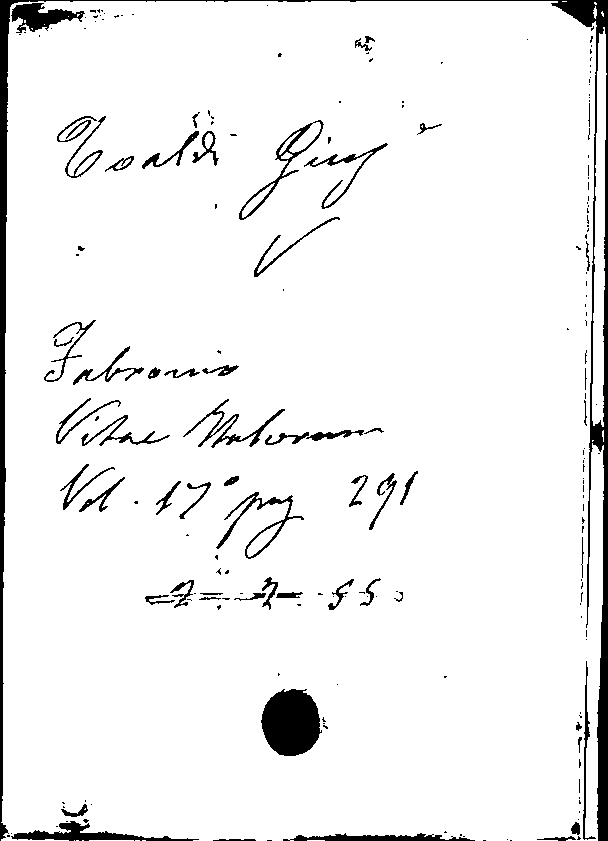 Toaldi Giusᵉ
Fabronio
Vitae Italorum
Vol. 17° pag 291